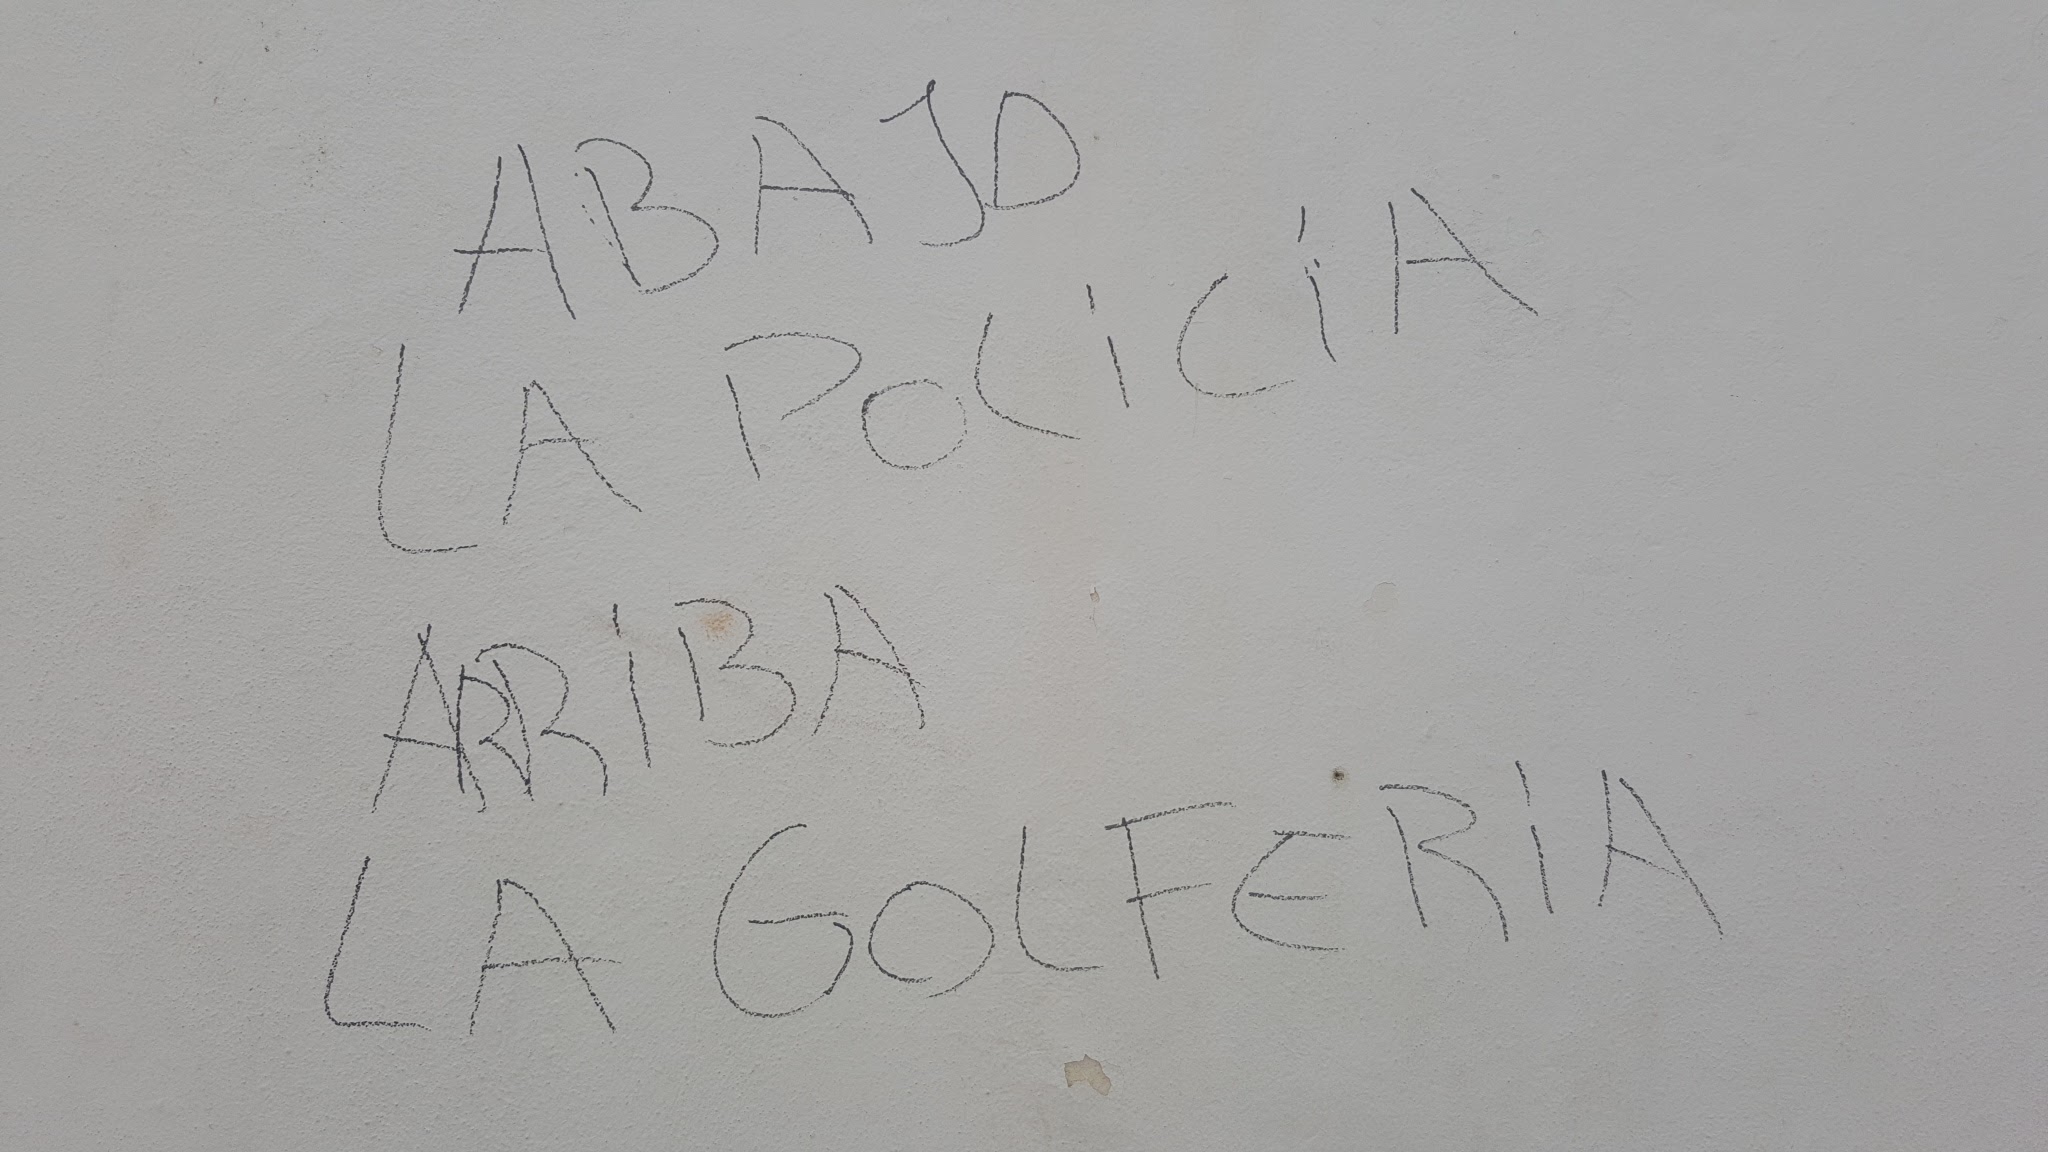 ABAJO
LA POLICIA
ARRIBA
LA GOLFERIA